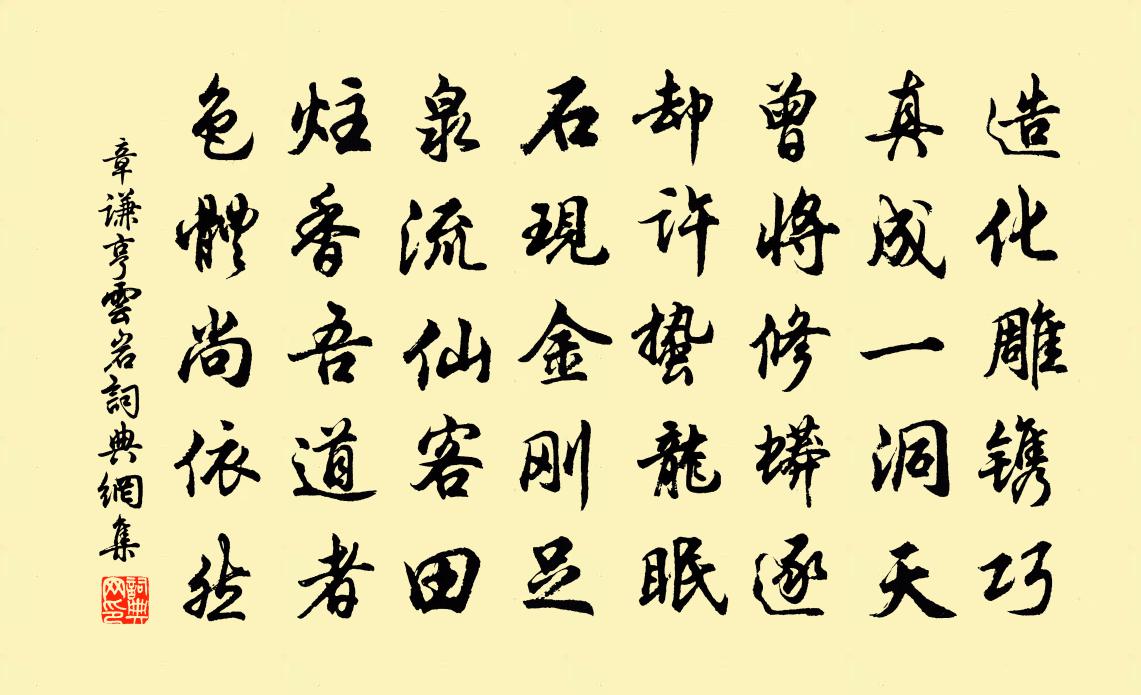 造化雕镌巧
真成一洞天
曾將修蟒逐
却許蟄龍眠
石現金刚足
泉流仙客田
炷香吾道者
色體尚依然
章谦亨雲岩詞典網集
詞典网印